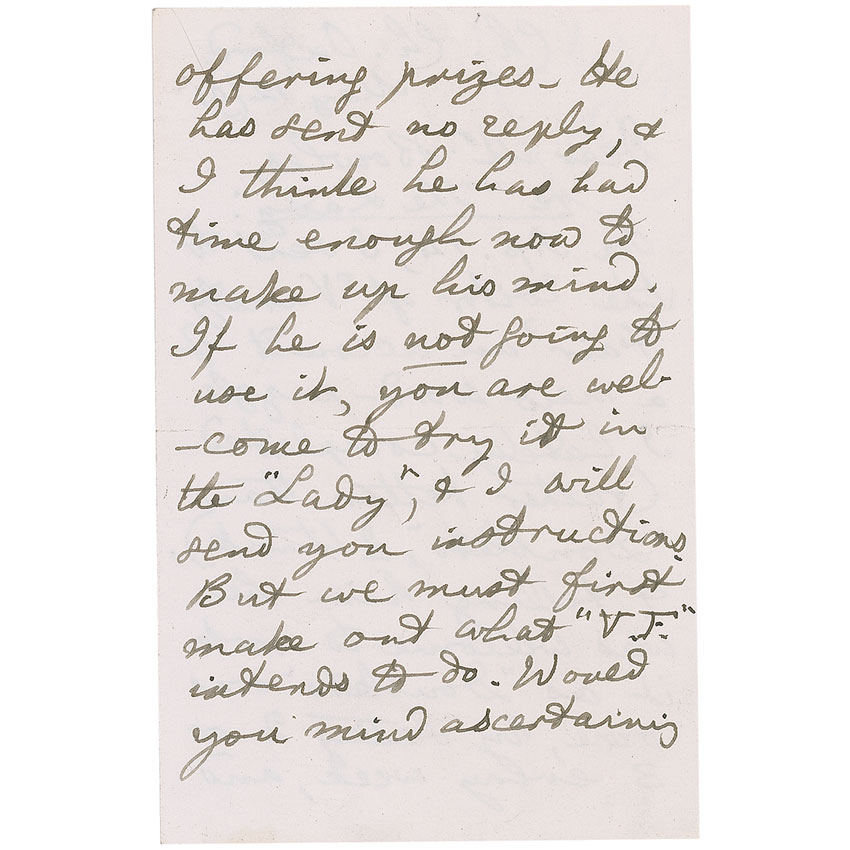 offering prizes – He
has sent no reply, &
I think he has had
time enough now to
make up his mind.
If he is not going to
use it, you are wel-
-come to try it in
the "Lady", & I will
send you instructions.
But we must first
make out what "V.F."
intends to do. Would
you mind ascertaining